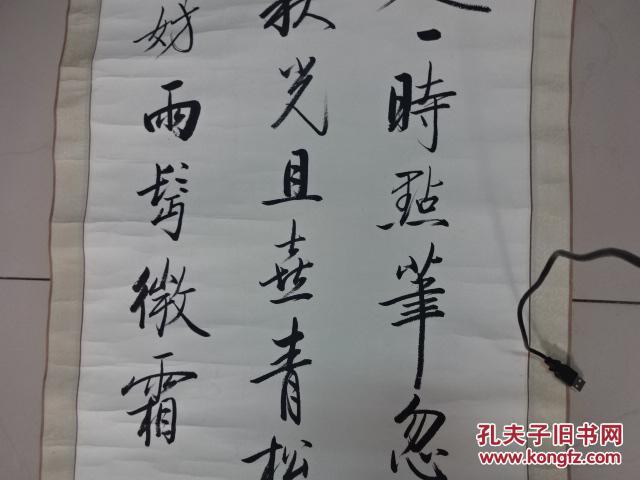 一時點筆忽
秋光且喜青松
妨兩鬓微霜
孔夫子旧书网
www.kongfz.com